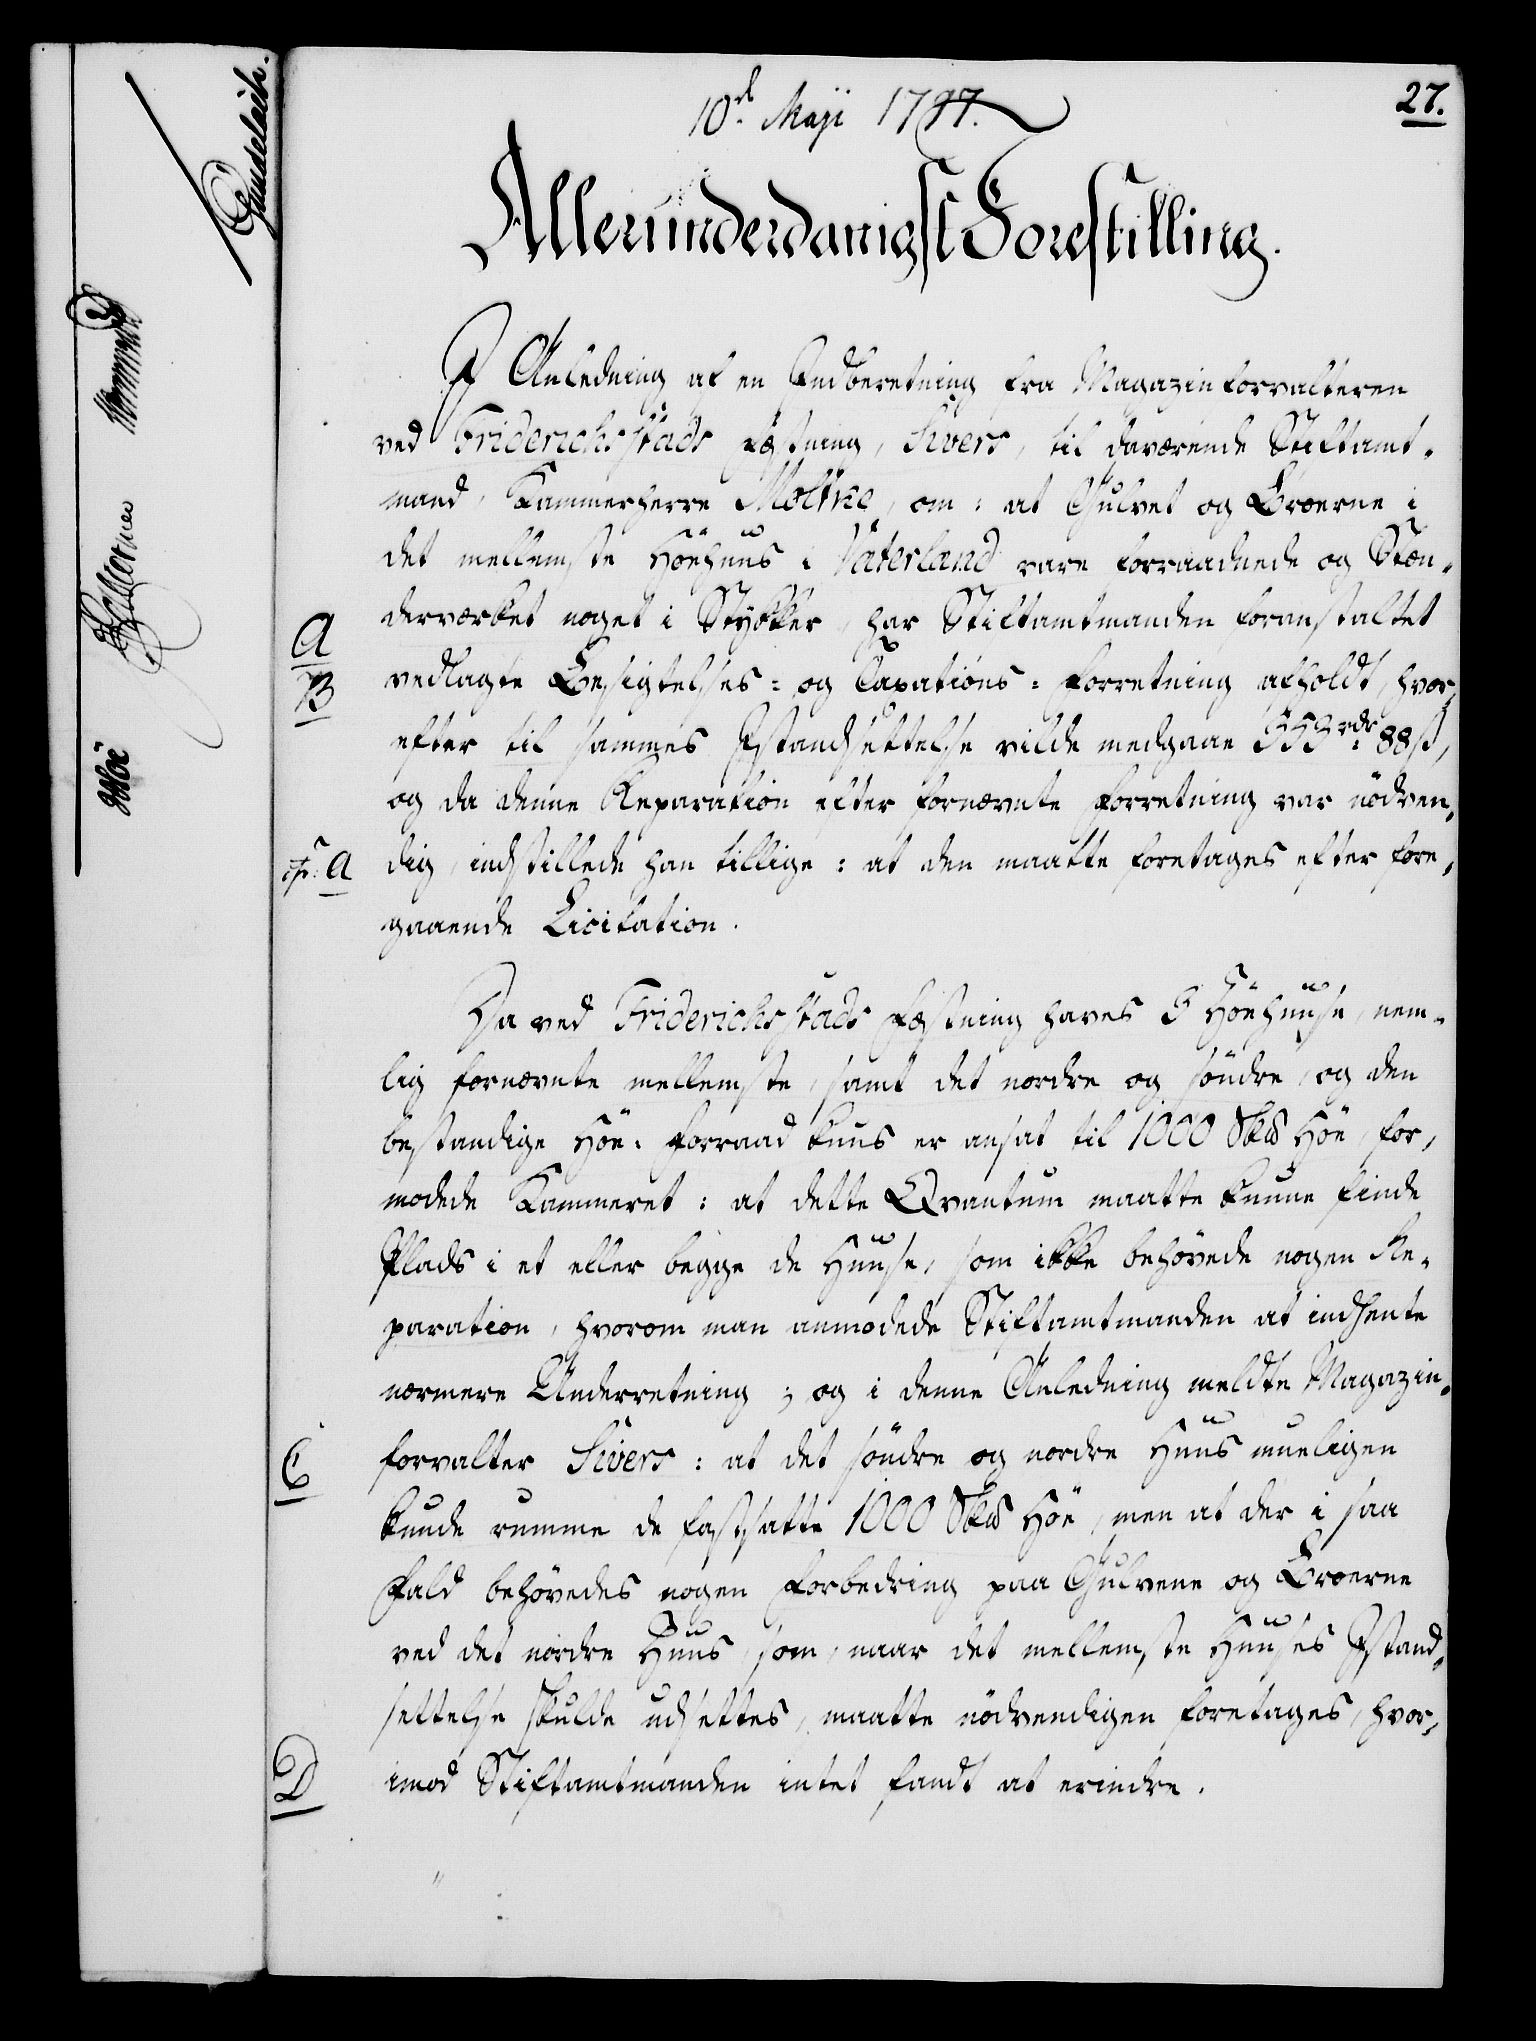 27.
10d Maji 1797.
Allerunderdanigst Forestilling.
I Anledning af en Indberetning fra Magazinforvalteren
ved Friderichsstads Fæstning, Sivers, til daværende Stiftamt-
mand, Kammerherre Moltke, om: at Gulvet og Broerne i
det mellemste Höehuus i Vaterland vare forraadnede og Stæn-
derværket noget i Stykker, har Stiftamtmanden foranstaltet
A
B
vedlagte Besigtelses= og Taxations=Forretning afholdt, hvor-
efter til sammes Istandsættelse vilde medgaae 353 rdr 88 ß,
og da denne Reparation efter fornævnte Forretning var nödven-
cfr: A
dig, indstillede han tillige: at den maatte foretages efter fore-
gaaende Licitation.
Da ved Friderichsstads Fæstning haves 3 Höehuuse, nem-
lig fornævnte mellemste, samt det nordre og söndre, og den
bestandige Höe-Forraad kuns er ansat til 1000 Sk℔ Höe, for-
modede Kammeret: at dette Qvantum maatte kunne finde
Plads i et eller begge de Huuse, som ikke behövede nogen Re-
paration, hvorom man anmodede Stiftamtmanden at indhente
nærmere Underretning; og i denne Anledning meldte Magazin-
C
forvalter Sivers: at det söndre og nordre Huus mueligen
kunde rumme de fastsatte 1000 Sk℔ Höe, men at der i saa
Fald behövedes nogen Forbedring paa Gulvene og Broerne
ved det nordre Huus, som, naar det mellemste Huuses Istand-
sættelse skulde udsættes, maatte nödvendigen foretages, hvor-
D
imod Stiftamtmanden intet fandt at erindre.
Gundelach.